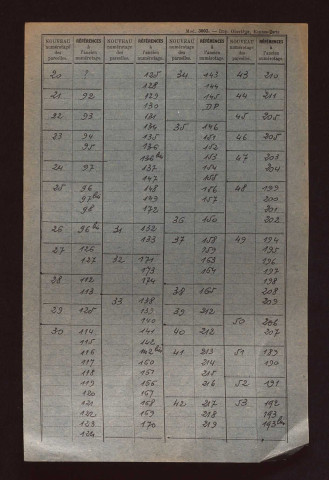 NOUVEAU numérotage des parcelles. RÉFÉRENCES à l'ancien numérotage. NOUVEAU numérotage des parcelles. RÉFÉRENCES à l'ancien numérotage. NOUVEAU numérotage des parcelles. RÉFÉRENCES à l'ancien numérotage. NOUVEAU numérotage des parcelles. RÉFÉRENCES à l'ancien numérotage.
20 ? 125 34 143 43 210
128 144
21 92 129 145 44 211
130 DP
22 93 131 45 205
134 35 146
23 94 135 151 46 205
95 136 152
136 bis 153 47 203
24 97 137 154 204
147 155
25 96 148 156 48 199
97 bis 149 157 200
98 172 201
36 150 202
26 96 bis 31 132
133 37 158 49 194
27 126 159 195
127 32 171 163 196
173 164 197
28 112 174 198
113 38 165 208
33 138 209
29 125 139 39 212
140 50 206
30 114 141 40 212 207
115 142
116 142 bis 41 213 51 189
117 160 214 190
118 161 215
119 216 52 191
120
121 168 42 217 53 192
122 169 218 193
123 170 219 193 bis
124